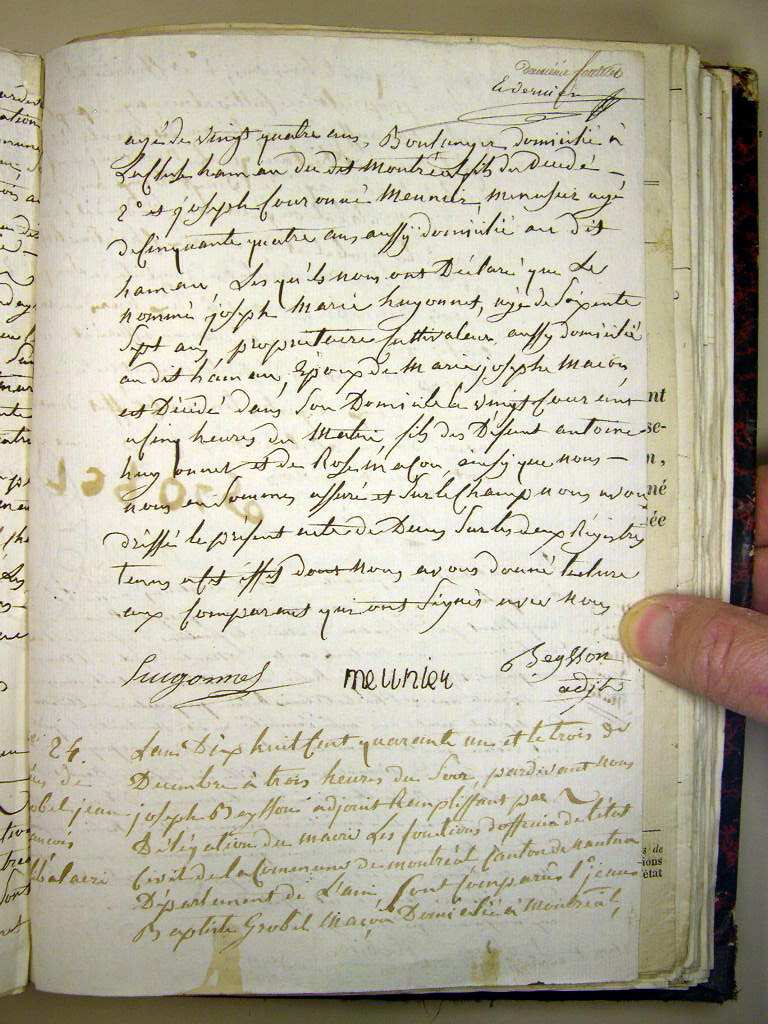 douzième feuillet
E. vernier
agé de vingt quatre ans, Boulanger domicilié à
hameau du dit Montréal fils du Décédé —
2° et joseph Couronné Meunier, menusier agé
de Cinquante quatre ans aussy domicilié au dit
hameau, Les qu'els nous ont Déclaré que Le
nommé joseph Marie hugonnet, agé de Soixente
Sept ans, propriétaire Cultivateur, aussy domicilié
au dit hameau, Epoux de Marie josephe Maçon
est Décédé dans Son Domicile le vingt
a Cinq heures du Matin, fils des Défunt antoine
hugonnet et de Rose Maçon, ainsy que nous —
nous en Sommes assuré et Sur le Champ nous avons
dréssé le présent acte de Deces Sur les deux Régistres
tenus a cet éffet dont Nous avons donné lecture
aux Comparant qui ont Signés avec Nous
hugonnet meunier Beysson
adjt
24.
de
obel jean
ançois
L'an Dix huit Cent quarante un et le trois de
Decembre à trois heures du Soir, pardevant nous
joseph Beysson adjoint Remplissant par
Délégation du maire Les fonctions d'officier de l'état
Civil de la Commune de montréal Canton de nantua
Département de L'ain Sont Comparûs 1° jean
Baptiste Grobel Maçon Domicilié à Montréal,
nt
se-
n,
né
ée
s de
ions
état